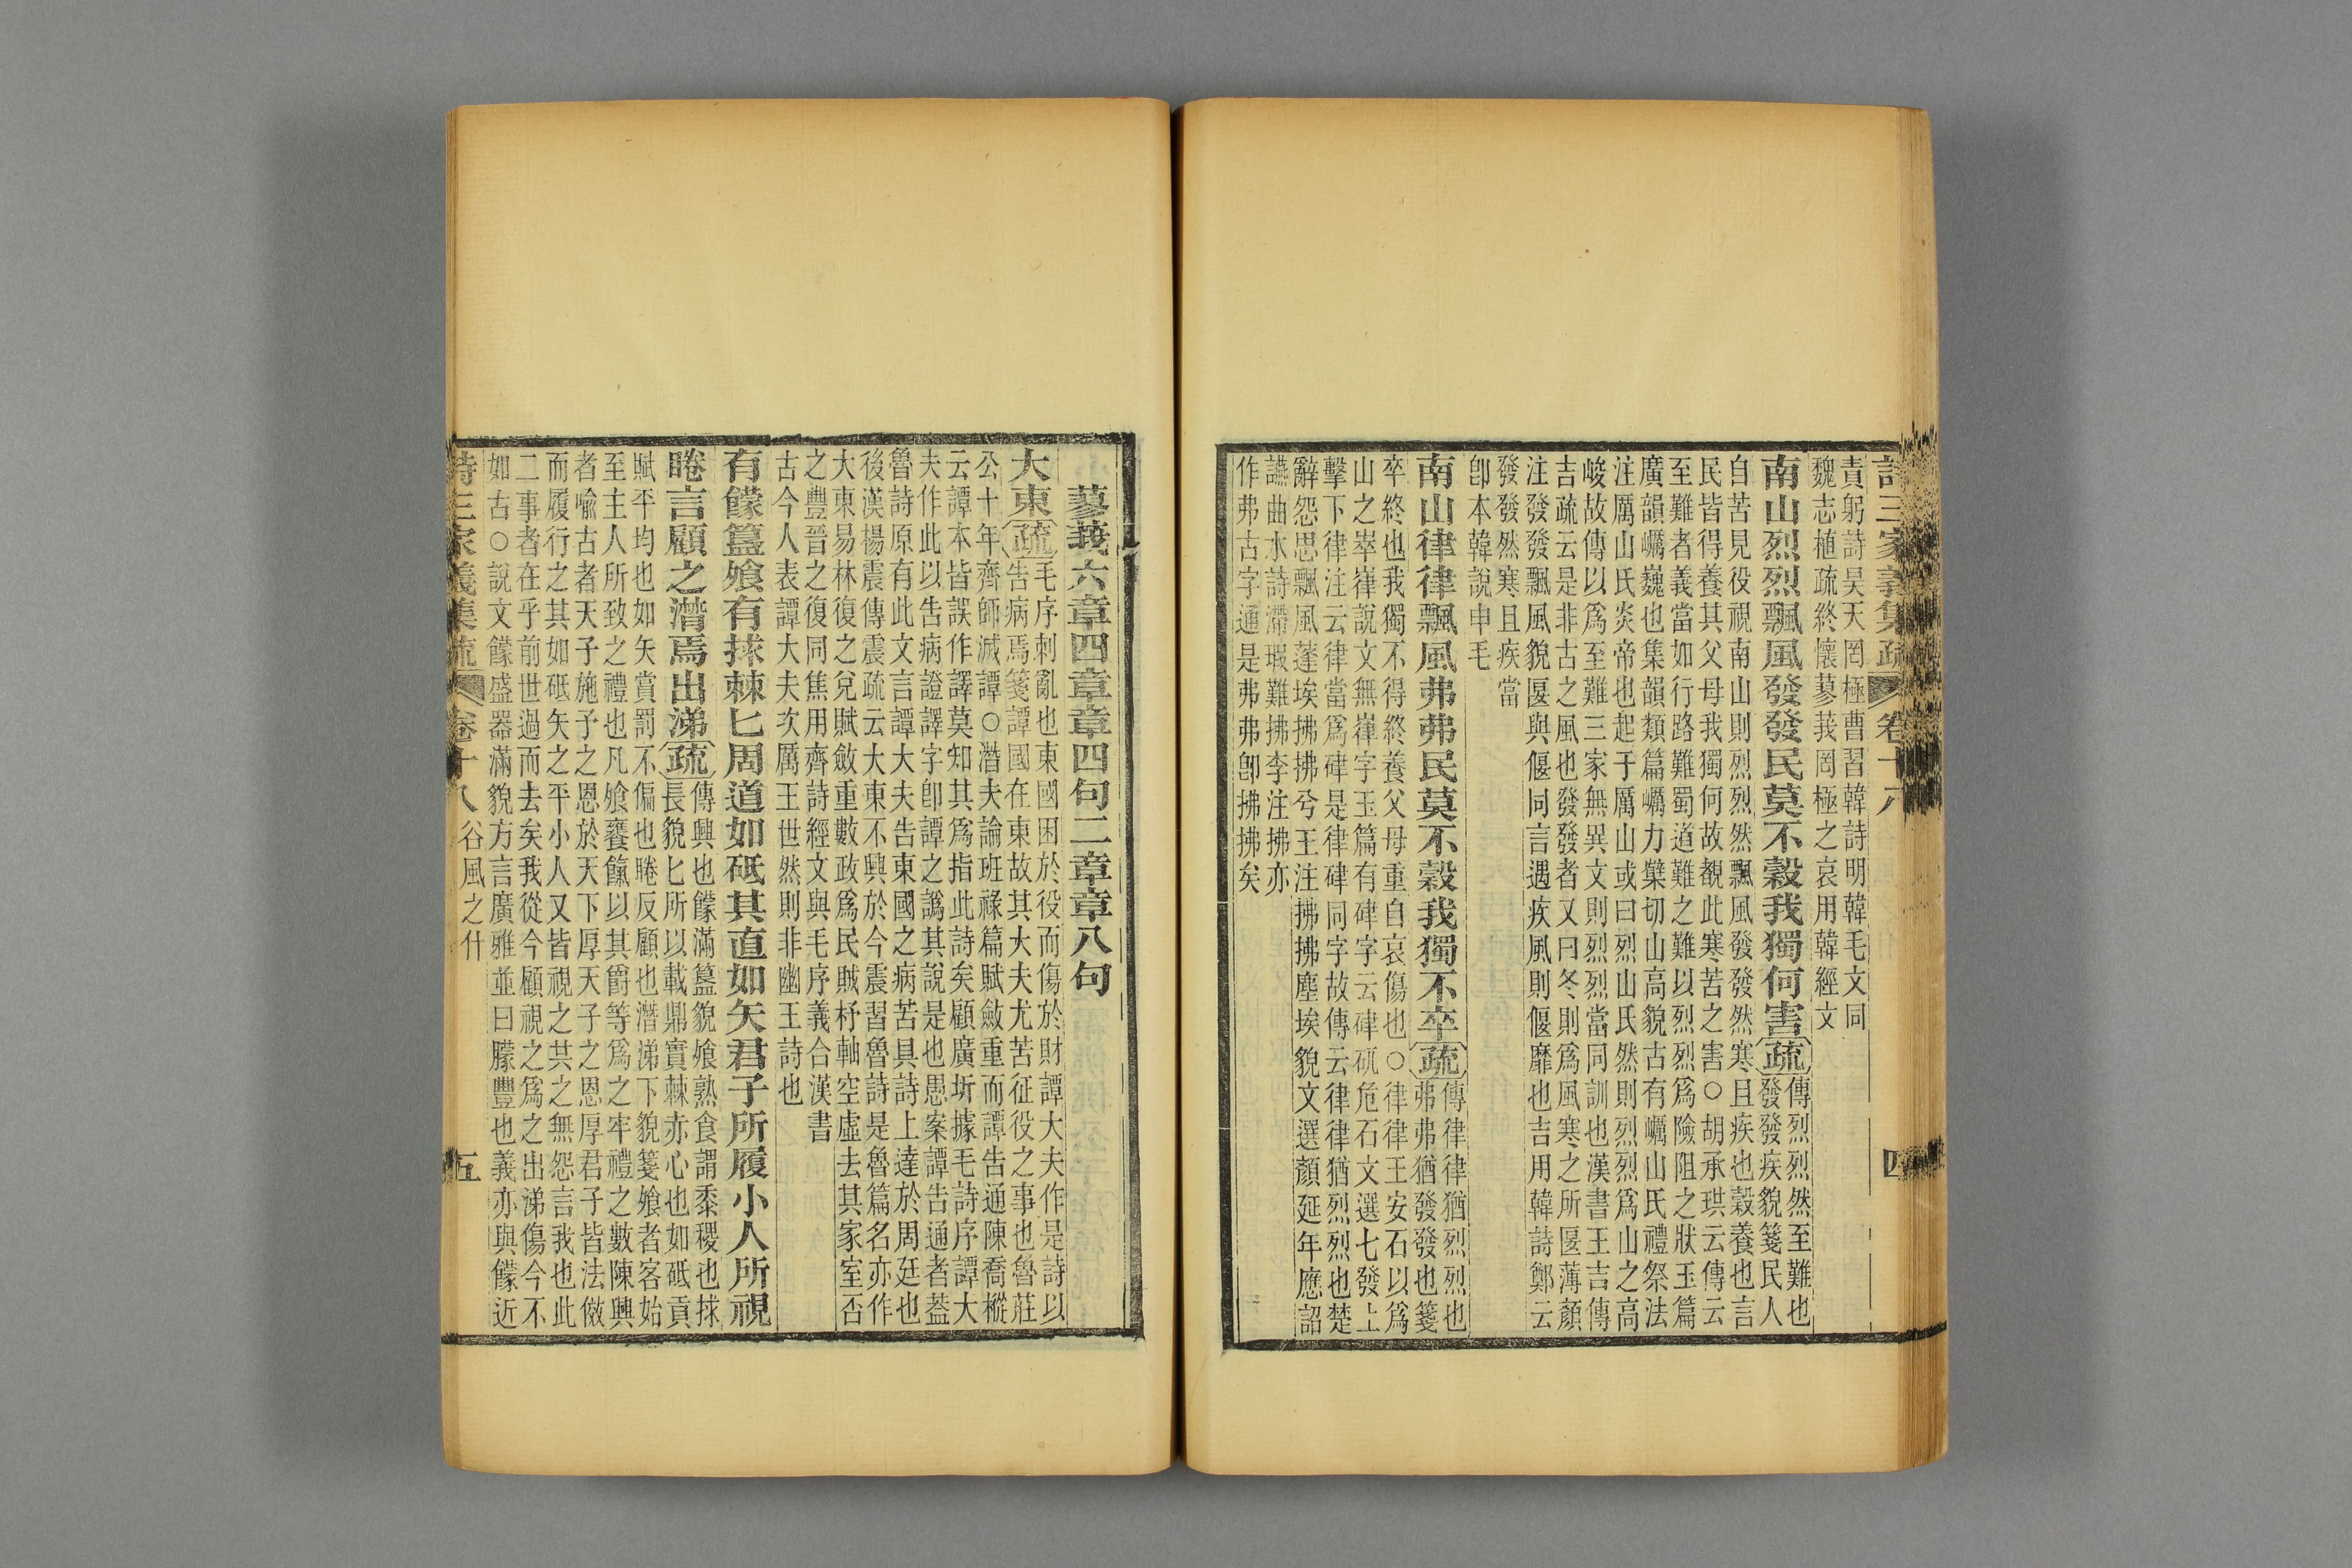 詩三家義集疏 卷十八 四
責躬詩昊天罔極曹習韓詩明韓毛文同
魏志植疏終懷蓼莪罔極之哀用韓經文
南山烈烈飄風發發民莫不穀我獨何害疏
傳烈烈然至難也
發發疾貌箋民人
自苦見役視南山則烈烈然飄風發發然寒且疾也穀養也言
民皆得養其父母我獨何故覩此寒苦之害○胡承珙云傳云
至難者義當如行路難蜀道難之難以烈烈爲險阻之狀玉篇
廣韻巁巍也集韻類篇巁力櫱切山高貌古有巁山氏禮祭法
注厲山氏炎帝也起于厲山或曰烈山氏然則烈烈爲山之高
峻故傳以爲至難三家無異文則烈烈當同訓也漢書王吉傳
吉疏云是非古之風也發發者又曰冬則爲風寒之所匽薄顏
注發發飄風貌匽與偃同言遇疾風則偃靡也吉用韓詩鄭云
發發然寒且疾當
卽本韓說申毛
南山律律飄風弗弗民莫不穀我獨不卒疏
傳律律猶烈烈也
弗弗猶發發也箋
卒終也我獨不得終養父母重自哀傷也○律律王安石以爲
山之崒嵂說文無嵂字玉篇有硉字云硉矹危石文選七發上
擊下律注云律當爲硉是律硉同字故傳云律律猶烈烈也楚
辭怨思飄風蓬埃拂拂兮王注拂拂塵埃貌文選顏延年應詔
讌曲水詩滯瑕難拂李注拂亦
作弗古字通是弗弗卽拂拂矣
蓼莪六章四章章四句二章章八句
大東疏
毛序刺亂也東國困於役而傷於財譚大夫作是詩以
告病焉箋譚國在東故其大夫尤苦征役之事也魯莊
公十年齊師滅譚○潛夫論班祿篇賦斂重而譚告通陳喬樅
云譚本皆誤作譯莫知其爲指此詩矣顧廣圻據毛詩序譚大
夫作此以告病證譯字卽譚之譌其說是也愚案譚告通者葢
魯詩原有此文言譚大夫告東國之病苦具詩上達於周廷也
後漢楊震傳震疏云大東不興於今震習魯詩是魯篇名亦作
大東易林復之兌賦斂重數政爲民賊杼軸空虛去其家室否
之豐晉之復同焦用齊詩經文與毛序義合漢書
古今人表譚大夫次厲王世然則非幽王詩也
有饛簋飧有捄棘匕周道如砥其直如矢君子所履小人所視
睠言顧之潸焉出涕疏
傳興也饛滿簋貌飧熟食謂黍稷也捄
長貌匕所以載鼎實棘赤心也如砥貢
賦平均也如矢賞罰不偏也睠反顧也潸涕下貌箋飧者客始
至主人所致之禮也凡飧饔餼以其爵等爲之牢禮之數陳興
者喻古者天子施予之恩於天下厚天子之恩厚君子皆法傚
而履行之其如砥矢之平小人又皆視之共之無怨言我也此
二事者在乎前世過而去矣我從今顧視之爲之出涕傷今不
如古○說文饛盛器滿貌方言廣雅並曰朦豐也義亦與饛近
詩三家義集疏 卷十八 谷風之什 五